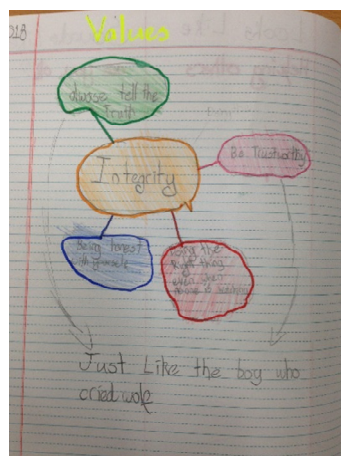 218
Values
always tell the
Truth
Integrity
Be Trustworthy
Being honest
with yourself
Doing the
Right thing
even when
no one is watching
Just Like the boy who
cried wolf